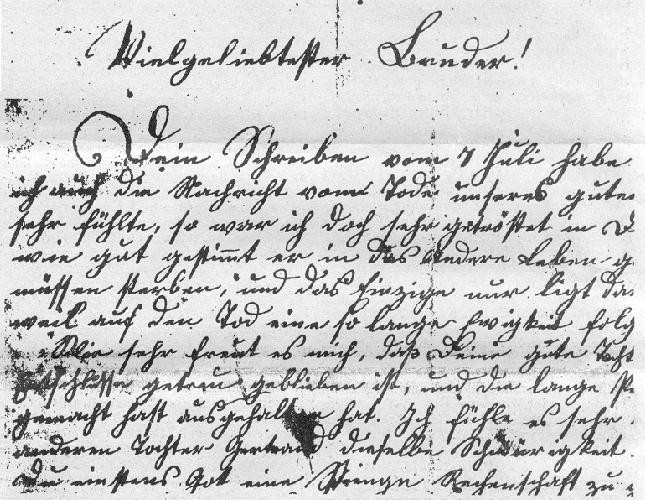 Vielgeliebtester Bruder!
Dein Schreiben vom 7 Juli habe
ich auch die Nachricht vom Tode unseres guten
sehr fühlte, so war ich doch sehr getröstet in D
wie gut gestimmt er in das Andere Leben g
müssen sterben, und das Einzige nur ligt da
weil auf den Tod eine so lange Ewigkeit folg
sehr freut es mich, daß Deine gute Tocht
getreu geblieben ist, und die lange
gemacht hast ausgehalten hat. Ich fühle es sehr
anderen Tochter Gertraud dieselbe Schwürigkeit
Du einstens Got eine Strenge Rechenschaft zu